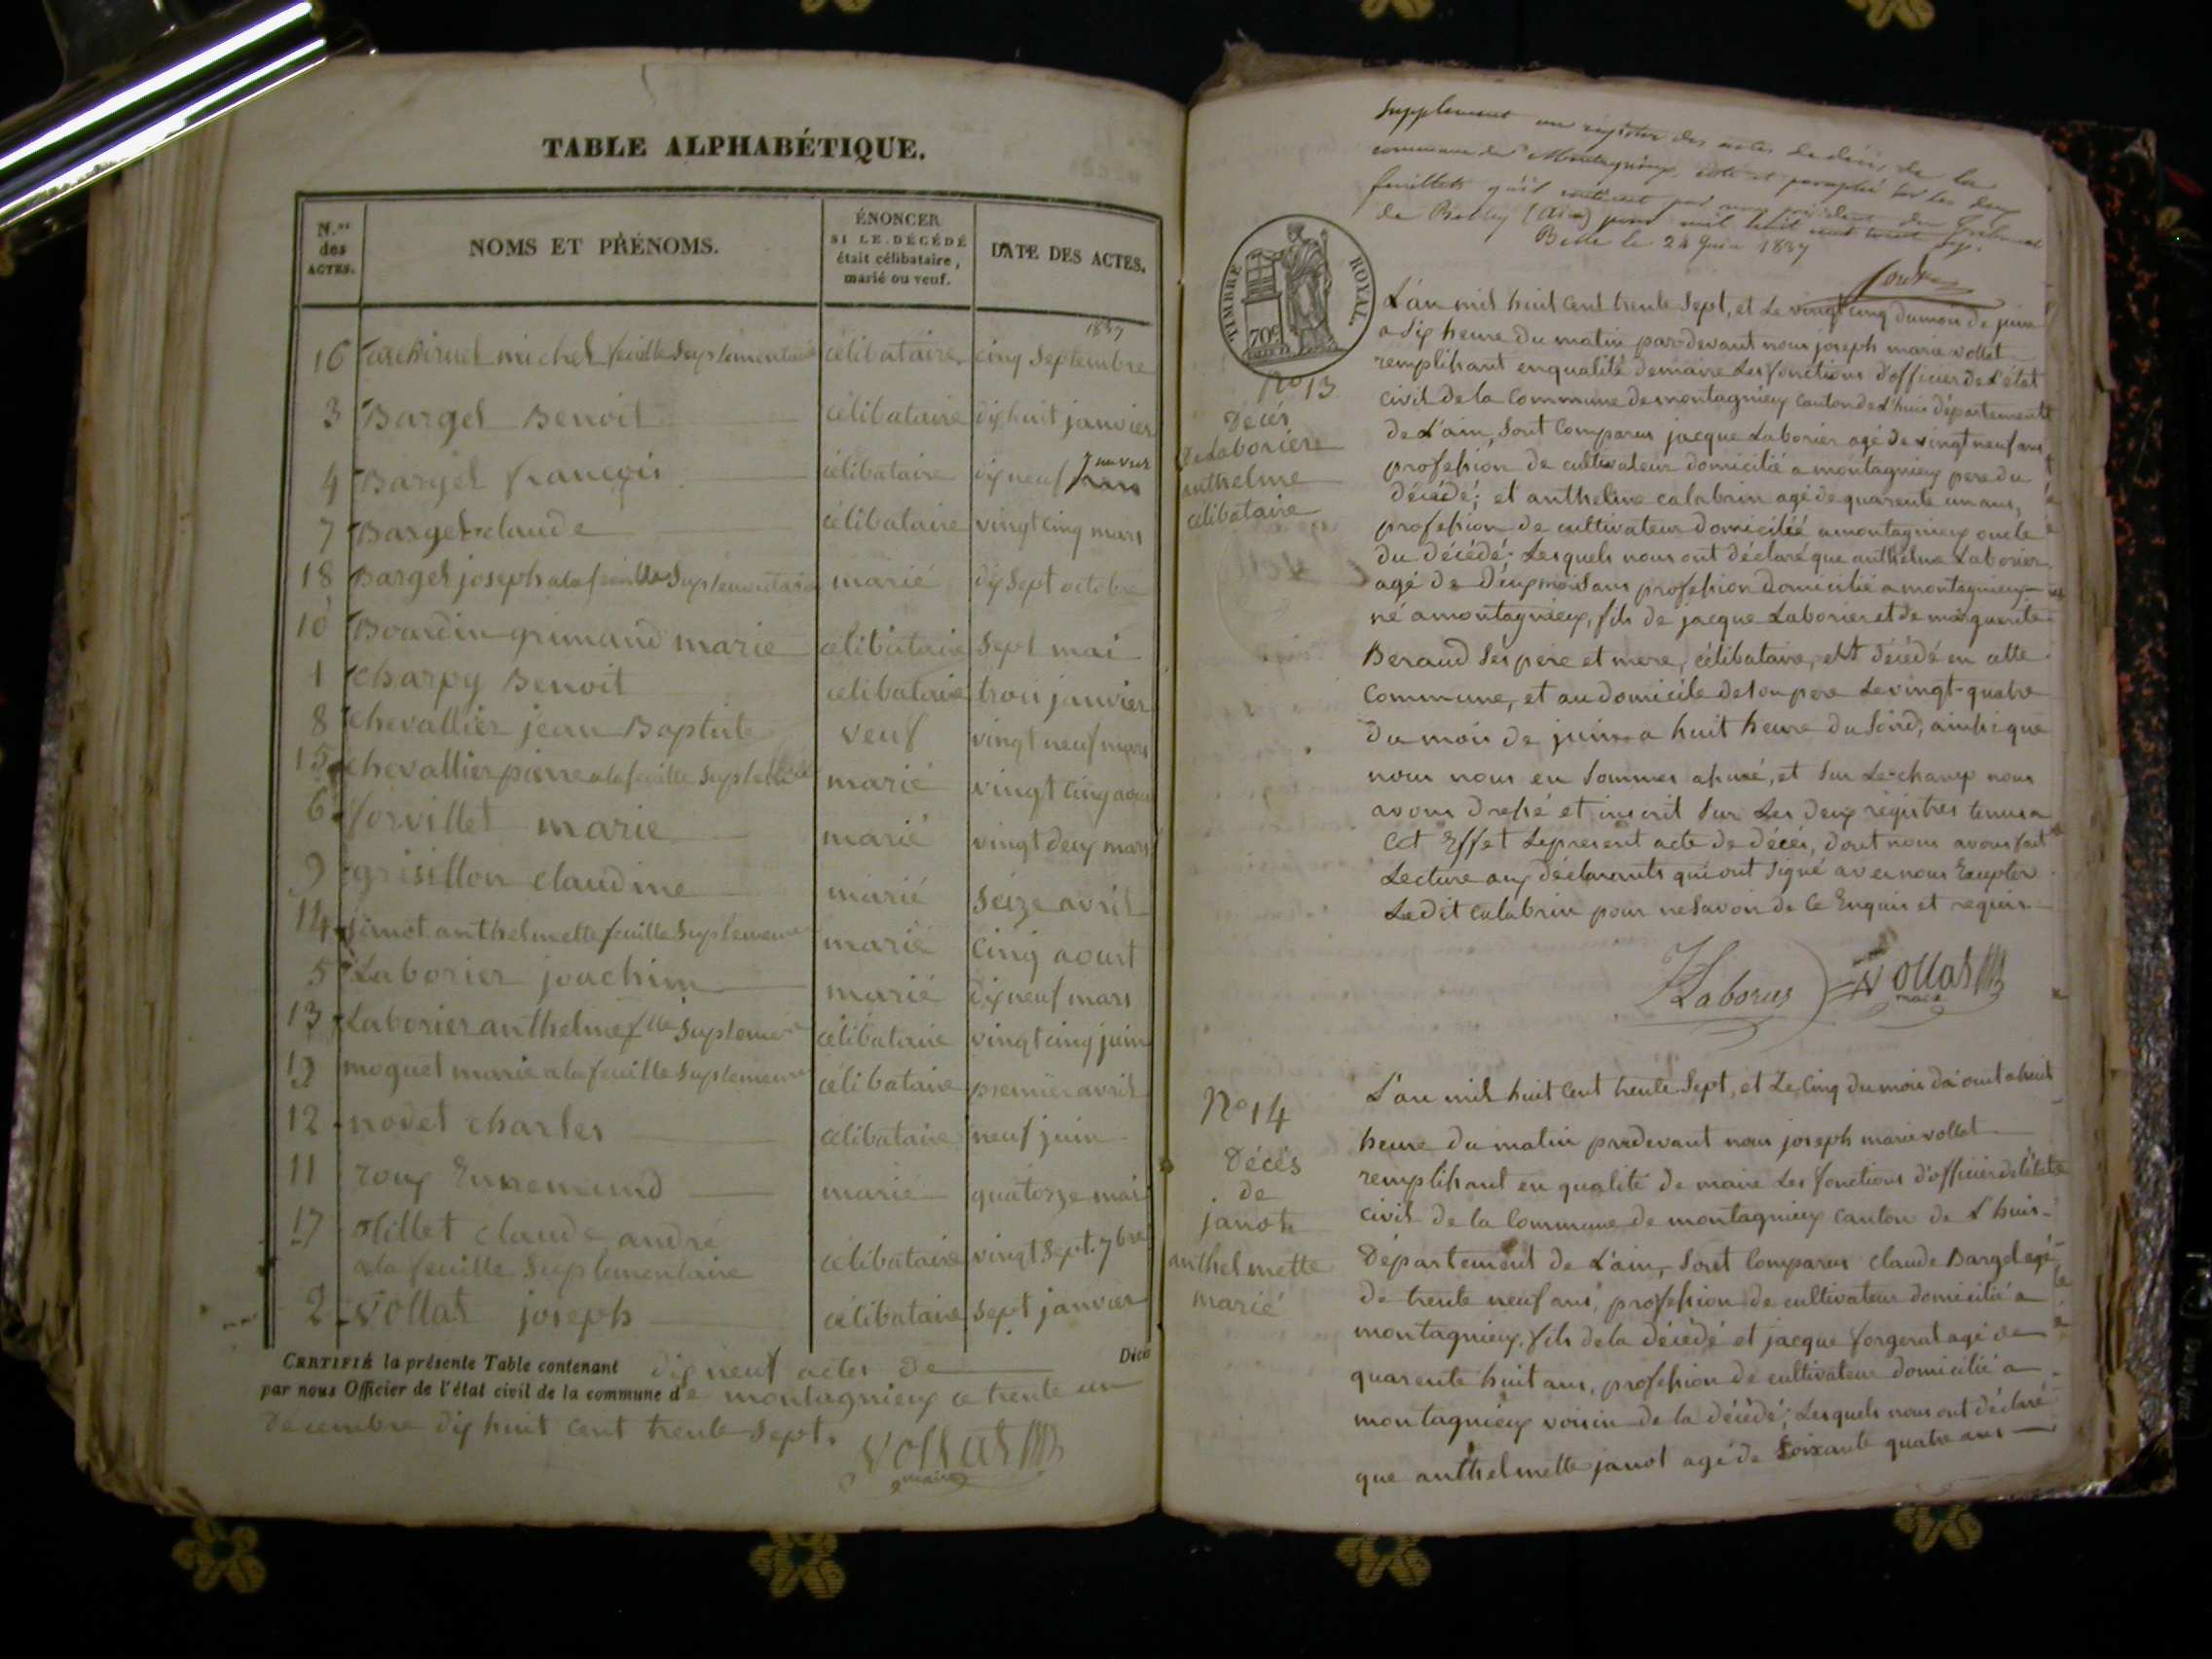 TABLE ALPHABÉTIQUE.
N.os des ACTES.
NOMS ET PRÉNOMS.
ÉNONCER SI LE DÉCÉDÉ était célibataire, marié ou veuf.
DATE DES ACTES.
1837
16 michel feuille Suplementaire célibataire cinq Septembre
3 Bargel Benoit célibataire dix huit janvier
4 Bargel françois célibataire dix neuf janvier
7 Bargel claude célibataire vingt cinq mars
18 Bargel joseph a la feuille Suplementaire marié dix Sept octobre
10 Bourdin grimand marie célibataire Sept mai
1 Charpy Benoit célibataire trois janvier
8 chevallier jean Baptiste veuf vingt neuf mars
15 chevallier pierre a la feuille marié vingt cinq aout
6 forvillet marie marié vingt deux mars
9 grisillon claudine marié Seize avril
14 janot anthelmette feuille Suplement marié cinq aoust
5 Laborier joachim marié dix neuf mars
13 Laborier anthelme flle Suplement célibataire vingt cinq juin
19 moguet marie a la feuille Suplement célibataire premier avril
12 nodet charles célibataire neuf juin
11 roux Ennemund marié quatorze mai
17 Millet claude andré
a la feuille Suplementaire célibataire vingt Sept. 7bre
2 Vollat joseph célibataire Sept janvier
CERTIFIÉ la présente Table contenant dix neuf actes de Dico
par nous Officier de l'état civil de la commune de montagnieux ce trente un
decembre dix huit cent trente Sept.
Vollat
maire
Supplement au registre des actes de décès de la
commune de Montagnieux, coté et paraphé sur les deux
feuillets qu'il contient par nous président du Tribunal
de Belley (Ain) pour mil huit cent trente sept.
Belley le 24 Juin 1837
TIMBRE ROYAL.
70c
No 13
Décés
De Laborier
anthelme
célibataire
L'an mil huit cent trente Sept, et Le vingt cinq du mois de juin
a Six heure du matin par devant nous joseph marie vollat
remplissant en qualité de maire Les fonctions d'officier de L'état
civil de la Commune de montagnieux canton de L'huis département
de L'ain, Sont Comparus jacque Laborier agé de vingt neuf ans
profession de cultivateur domicilié a montagnieux pere du
décédé; et anthelme calabrin agé de quarente un ans,
profession de cultivateur domicilié a montagnieux oncle
du décédé. Lesquels nous ont déclaré que anthelme Laborier
agé de Deux mois Sans profession domicilié a montagnieux
né a montagnieux, fils de jacque Laborier et de marguerite
Beraud Ses pere et mere, célibataire, est décédé en cette
Commune, et au domicile de Son pere Le vingt-quatre
du mois de juin a huit heure du Soird, ainsi que
nous nous en Sommes assuré, et Sur Le-champ nous
avons dressé et inscrit Sur Les deux registres tenus a
Cet Effet Le present acte de décés, dont nous avons fait
Lecture aux déclarants qui ont Signé avec nous Excepter
Ledit calabrin pour ne Savoir de Ce Enquis et requis
Laborier Vollat
maire
No 14
Décés
de
janot
anthelmette
marié
L'an mil huit cent trente Sept, et Le Cinq du mois d'aout a huit
heure du matin pardevant nous joseph marie vollat
remplissant en qualité de maire Les fonctions d'officier de L'état
civil de la Commune de montagnieux canton de L'huis
Département de L'ain, Sont Comparus claude Bargel agé
de trente neuf ans, profession de cultivateur domicilié a
montagnieux, fils de la décédé et jacque forgerat agé de
quarente huit ans, profession de cultivateur domicilié a
montagnieux voisin de la décédé; Lesquels nous ont déclaré
que anthelmette janot agé de Soixante quatre ans